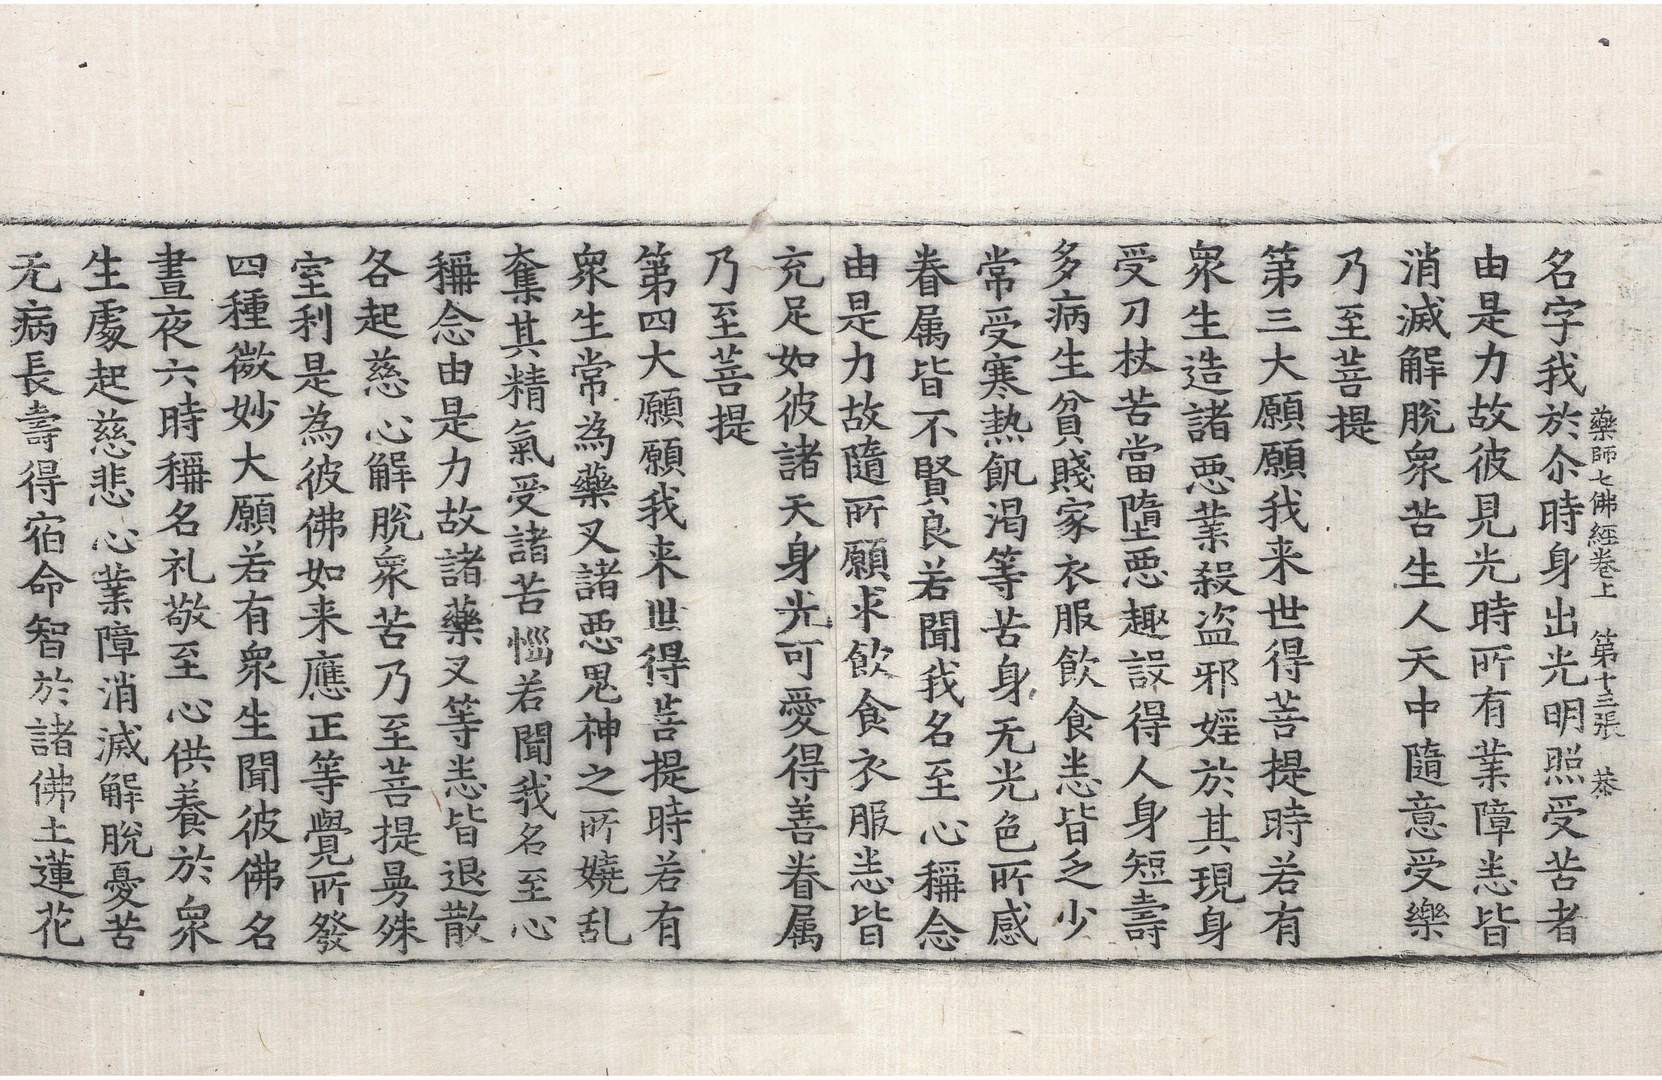 藥師七佛經卷上　第十三張　恭
名字我於尒時身出光明照受苦者
由是力故彼見光時所有業障悉皆
消滅解脫衆苦生人天中隨意受樂
乃至菩提
第三大願願我来世得菩提時若有
衆生造諸惡業殺盗邪婬於其現身
受刀杖苦當墮惡趣設得人身短壽
多病生貧賤家衣服飲食悉皆乏少
常受寒熱飢渴等苦身无光色所感
眷属皆不賢良若聞我名至心稱念
由是力故隨所願求飲食衣服悉皆
充足如彼諸天身光可愛得善眷属
乃至菩提
第四大願願我来世得菩提時若有
衆生常為藥叉諸惡鬼神之所嬈乱
奪其精氣受諸苦惱若聞我名至心
稱念由是力故諸藥叉等悉皆退散
各起慈心解脫衆苦乃至菩提曼殊
室利是為彼佛如来應正等覺所發
四種微妙大願若有衆生聞彼佛名
晝夜六時稱名礼敬至心供養於衆
生處起慈悲心業障消滅解脫憂苦
无病長壽得宿命智於諸佛土蓮花